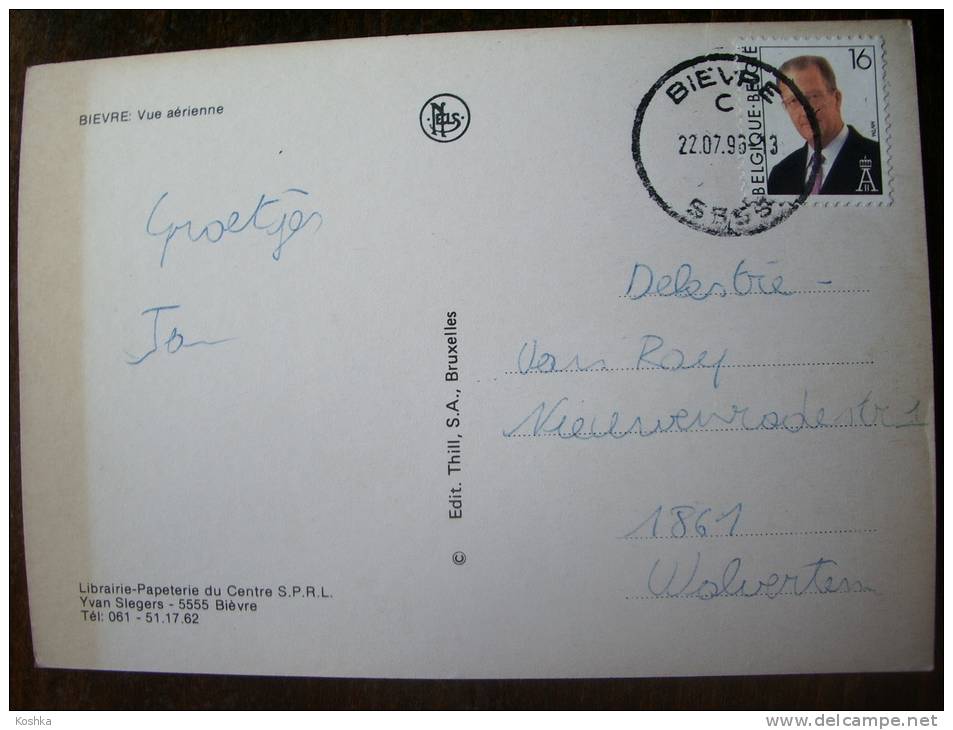 BIEVRE: Vue aérienne
NELS
BIEVRE
C
22.07.96-13
5555
16
BELGIQUE·BELGIË
Groetjes
Jan
Delestrie -
Van Roy
Nieuwenrodestr 1
1861
Wolvertem
© Edit. Thill, S.A., Bruxelles
Librairie-Papeterie du Centre S.P.R.L.
Yvan Slegers - 5555 Bièvre
Tél: 061 - 51.17.62
Koshka
www.delcampe.net